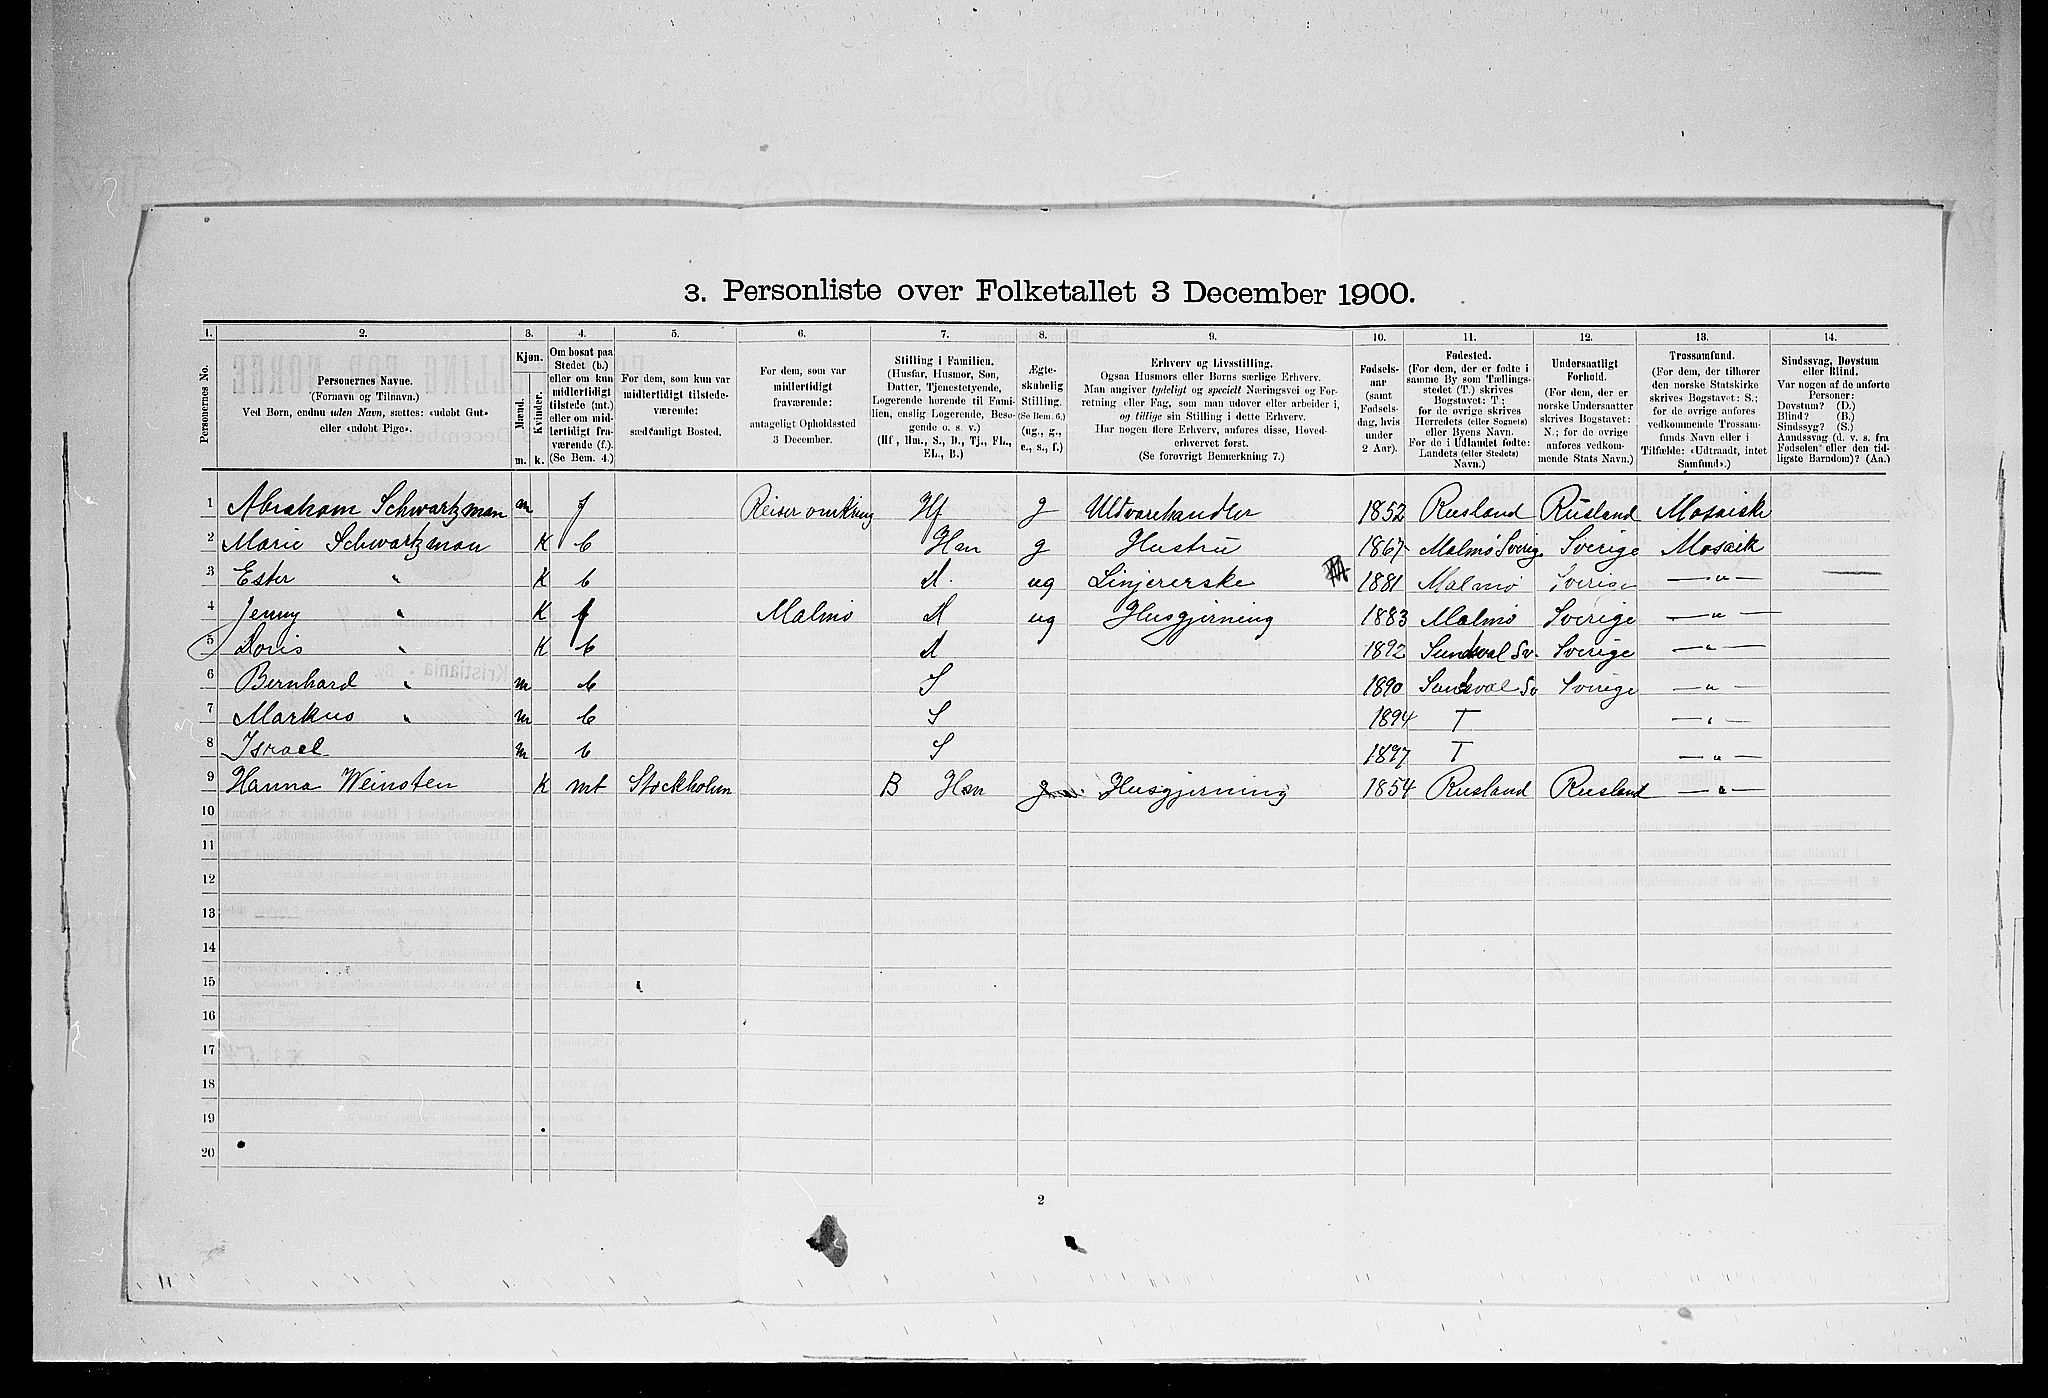 3. Personliste over Folketallet 3 December 1900.
1. 2. 3. 4. 5. 6. 7. 8. 9. 10. 11. 12. 13. 14.
Personernes No.
Personernes Navne.
(Fornavn og Tilnavn.)
Ved Børn, endnu uden Navn, sættes: «udøbt Gut»
eller «udøbt Pige».
Kjøn.
Mænd.
Kvinder.
m. k.
Om bosat paa
Stedet (b.)
eller om kun
midlertidigt
tilstede (mt.)
eller om mid-
lertidigt fra-
værende (f.).
(Se Bem. 4.)
For dem, som kun var
midlertidigt tilstede-
værende:
sædvanligt Bosted.
For dem, som var
midlertidigt
fraværende:
antageligt Opholdssted
3 December.
Stilling i Familien.
(Husfar, Husmor, Søn,
Datter, Tjenestetyende,
Logerende hørende til Fami-
lien, enslig Logerende, Besø-
gende o. s. v.)
(Hf, Hm., S., D., Tj., FL.,
EL., B.)
Ægte-
skabelig
Stilling.
(Se Bem. 6.)
(ug., g.,
e., s., f.)
Erhverv og Livsstilling.
Ogsaa Husmors eller Børns særlige Erhverv.
Man angiver tydeligt og specielt Næringsvei og For-
retning eller Fag, som man udøver eller arbeider i,
og tillige sin Stilling i dette Erhverv.
Har nogen flere Erhverv, anføres disse, Hoved-
erhvervet først.
(Se forøvrigt Bemærkning 7.)
Fødsels-
aar
(samt
Fødsels-
dag, hvis
under
2 Aar).
Fødested.
(For dem, der er fødte i
samme By som Tællings-
stedet (T.) skrives
Bogstavet: T;
for de øvrige skrives
Herredets (eller Sognets)
eller Byens Navn.
For de i Udlandet fødte:
Landets (eller Stedets)
Navn.)
Undersaatligt
Forhold.
(For dem, der er
norske Undersaatter
skrives Bogstavet:
N.; for de øvrige
anføres vedkom-
mende Stats Navn.)
Trossamfund.
(For dem, der tilhører
den norske Statskirke
skrives Bogstavet: S.;
for de øvrige anføres
vedkommende Trossam-
funds Navn eller i
Tilfælde: «Udtraadt, intet
Samfund».)
Sindssvag, Døvstum
eller Blind.
Var nogen af de anførte
Personer:
Døvstum? (D.)
Blind? (B.)
Sindssyg? (S.)
Aandssvag (d. v. s. fra
Fødselen eller den tid-
ligste Barndom)? (Aa.)
1 Abraham Schwartzman m f Reiser omkring Hf g Uldvarehandler 1852 Rusland Rusland Mosaiske
2 Marie Schwartzman K b Hm g Hustru 1867 Malmø Sverig Sverige Mosaik
3 Ester " K b d. ug Linjererske 1881 Malmø Sverige — " —
4 Jenny " K f Malmø d ug Husgjerning 1883 Malmø Sverige — " —
5 Doris " K b d 1892 Sundsval Sv. Sverige — " —
6 Bernhard " m b S 1890 Sundsval Sv Sverige — " —
7 Markus " m b S 1894 T — " —
8 Israel m b S 1897 T — " —
9 Hanna Weinsten K mt Stockholm B Hm g Husgjerning 1854 Rusland Rusland — " —
10
11
12
13
14
15
16
17
18
19
20
2